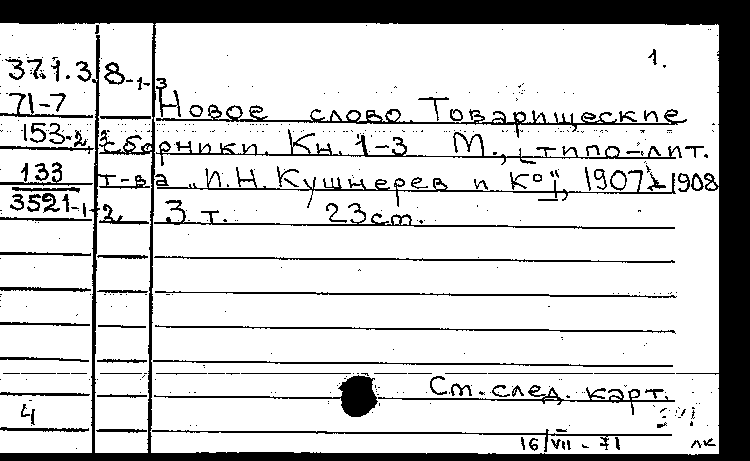 1.
37.1.3.8-1-3
71-7 Новое слово. Товарищеские
153-2,3 сборники. Кн. 1-3 М., [типо-лит.
133 т-ва „И.Н. Кушнерев и К°"], 1907-1908
3521-1-2 3 т. 23 см.
См. след. карт.
4
16/VII - 71 ЛК